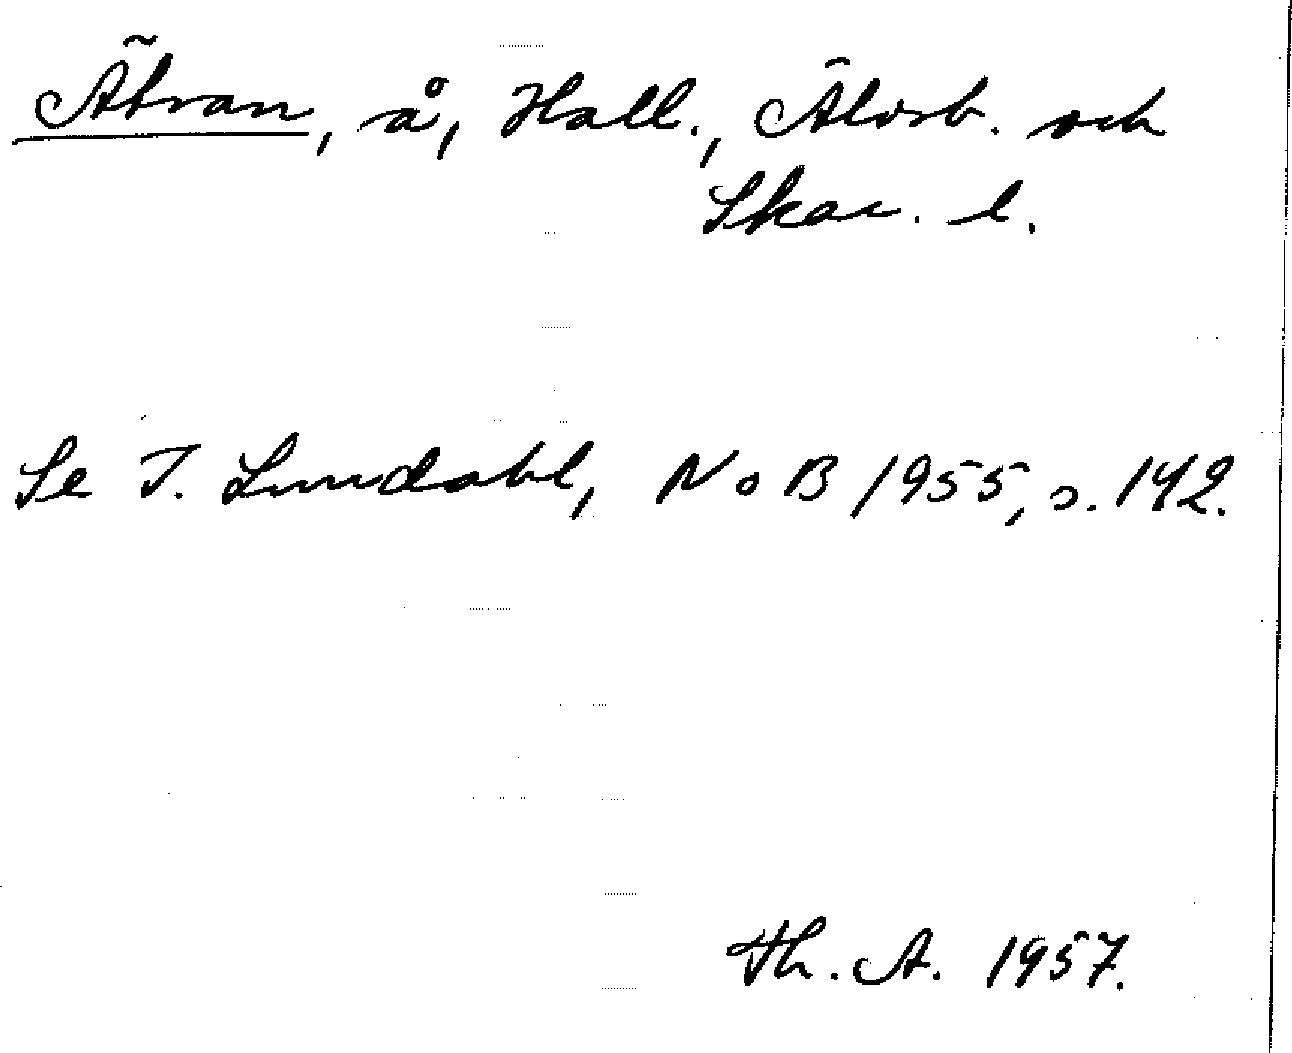 Ätran, å, Hall., Älvsb. och
Skar. l.
Se I. Lundahl, NoB 1955, s. 142.
Th. A. 1957.